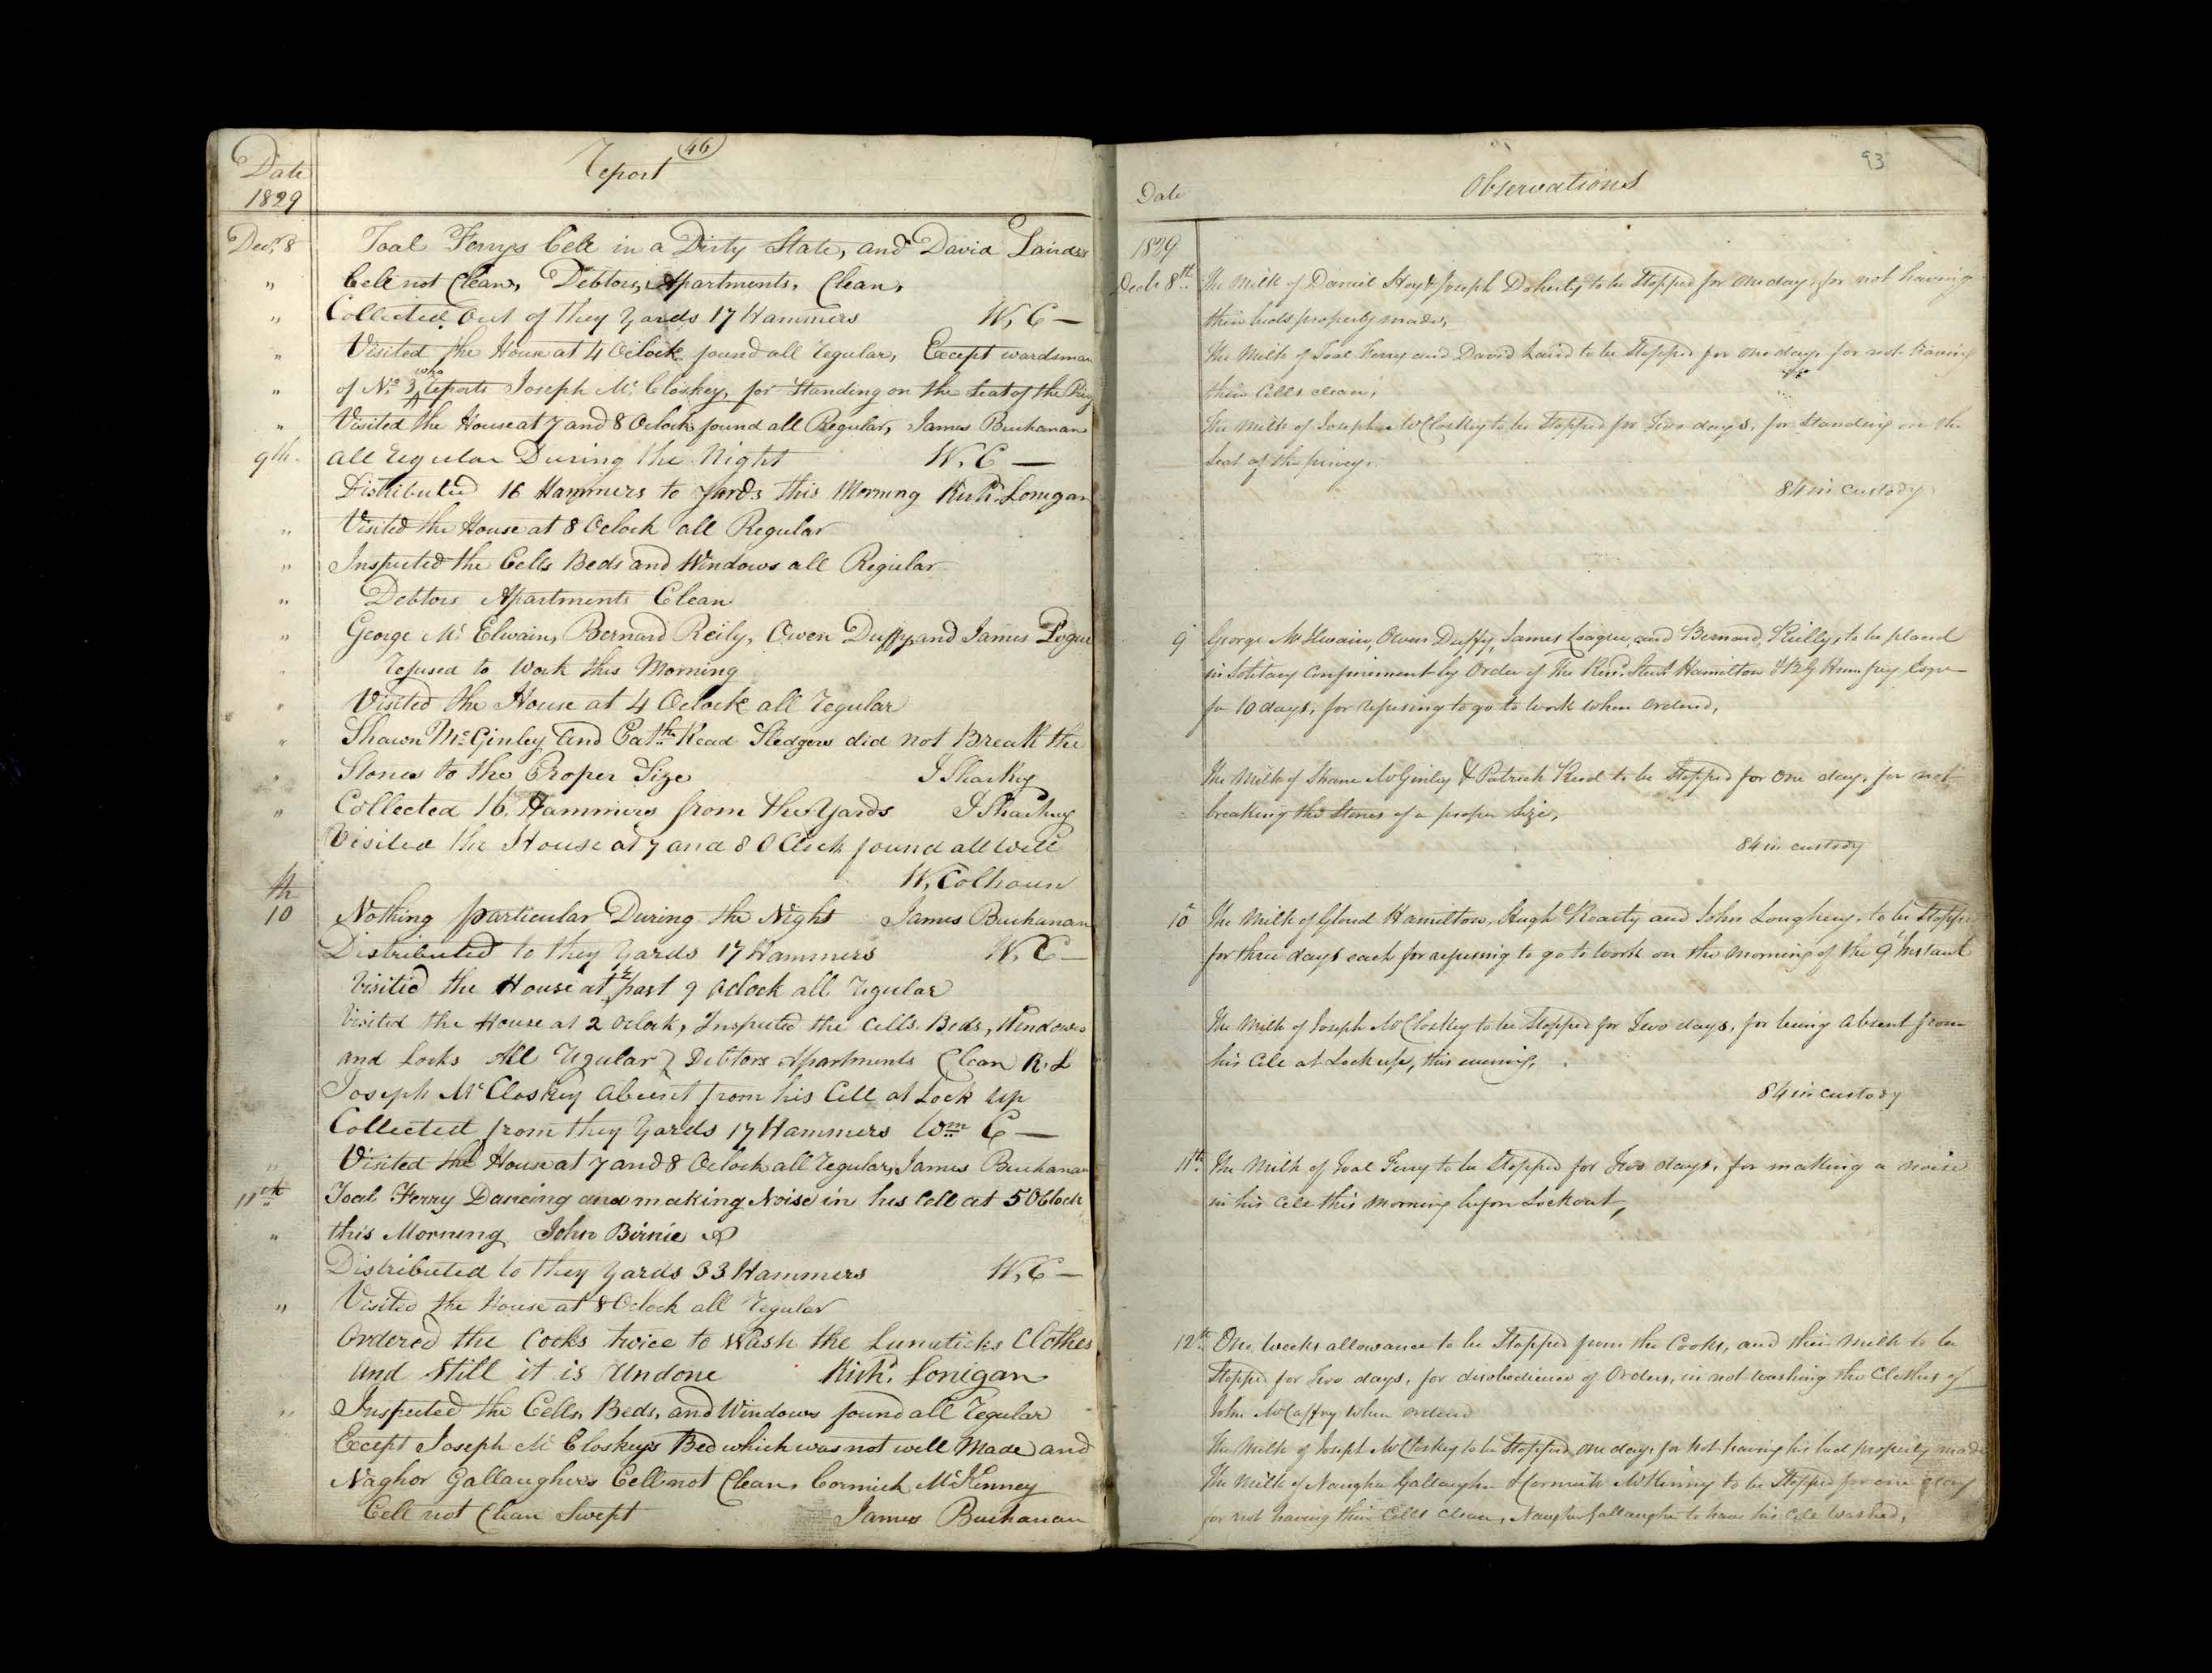 46
Date
Report
1829
Decr. 8 Toal Ferrys Cell in a Dirty State, and David Lairds
" Cell not Clean, Debtors, Apartments, Clean,
" Collected Out of they Yards 17 Hammers W, C —
" Visited the House at 4 OClock found all regular, Except wardsman
who
" of No. 3 reports Joseph Mc. Closkey, for Standing on the Seat of the
" Visited the House at 7 and 8 Oclock found all Regular, James Buchanan
9th. all regular During the Night W. C —
Distributed 16 Hammers to yards this Morning Richd. Lonigan
" Visited the House at 8 Oclock all Regular
" Inspected the Cells Beds and Windows all Regular
" Debtors Apartments Clean
" George Mc Elwain, Bernard Reily, Owen Duffy and James Logue
" refused to Work this Morning
" Visited the House at 4 Oclock all regular
" Shawn Mc Ginley and Path. Read Sledgers did not Break the
" Stones to the Proper Size J Sharkey
" Collected 16. Hammers from the Yards J Sharkey
Visited the House at 7 and 8 OClock found all Well
W, Colhoun
th
10 Nothing particular During the Night James Buchanan
Distributed to they Yards 17 Hammers W, C —
Visited the House at 1/2 past 9 Oclock all regular
Visited the House at 2 Oclock, Inspected the Cells. Beds, Windows
and Locks All regular Debtors Apartments Clean R. L
Joseph Mc Closkey absent from his Cell at Lock Up
Collected from they Yards 17 Hammers Wm C —
" Visited the House at 7 and 8 Oclock all regular, James Buchanan
11th Toal Ferry Dancing and making Noise in his Cell at 5 OClock
" this Morning John Birnie
Distributed to they Yards 33 Hammers W, C —
" Visited the House at 8 Oclock all regular
Ordered the Cooks twice to Wash the Lunaticks Clothes
and Still it is Undone Richd. Lonigan
" Inspected the Cells, Beds, and Windows found all regular
Except Joseph Mc Closkeys Bed which was not well Made and
Naghor Gallaughers Cell not Clean, Cormick McKenney
Cell not Clean Swept James Buchanan
93
Date
Observations
1829
Decbr 8th. The Milk of Daniel Hoy & Joseph Doherty to be Stopped for one day, for not having
their beds properly made,
The Milk of Toal Ferry and David Laird to be Stopped for one day, for not having
their Cells clean,
The Milk of Joseph McCloskey to be Stopped for Two days, for Standing on the
Seat of the privey.
84 in custody
9 George McIlwain, Owen Duffy, James Loague, and Bernard Reilly, to be placed
in Solitary Confinement by Order of the Revd. Hamilton Humfrey Esqr
for 10 days, for refusing to go to work when ordered,
The Milk of Shane McGinley & Patrick Read to be Stopped for one day, for not
breaking the Stones of a proper Size,
84 in custody
10 The Milk of Hamilton, Hugh Roarty and John Loughery, to be Stopped
for three days each for refusing to go to work on the morning of the 9th Instant
The Milk of Joseph McCloskey to be Stopped for Two days, for being absent from
his Cell at Lock up, this evening,
84 in custody
11th. The Milk of Toal Ferry to be Stopped for Two days, for making a noise
in his Cell this Morning before Lockout,
12th. One weeks allowance to be Stopped from the Cooks, and their Milk to be
Stopped for Two days, for disobedience of Orders, in not washing the Clothes of
John McCaffry when ordered
The Milk of Joseph McCloskey to be Stopped one day, for not having his bed properly made
The Milk of Naugher Gallaugher & Cormick McKinny to be Stopped for one day
for not having their Cells clean, Naugher Gallaugher to have his Cell washed,